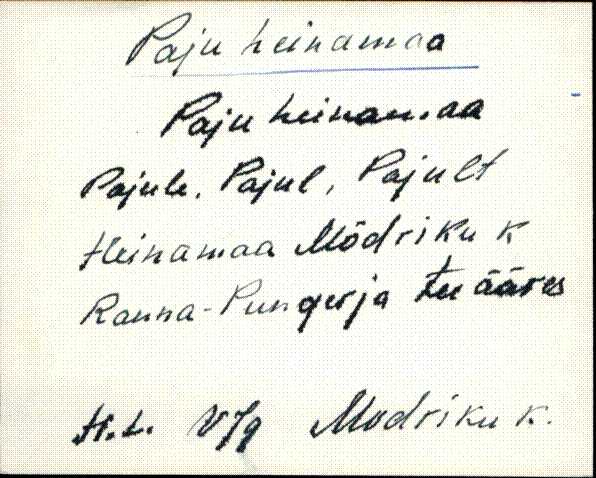 Paju heinamaa
Paju heinamaa
Pajule, Pajul, Pajult
Heinamaa Mõdriku k
Ranna-Pungerja tee ääres
H.L. V/g Mõdriku k.